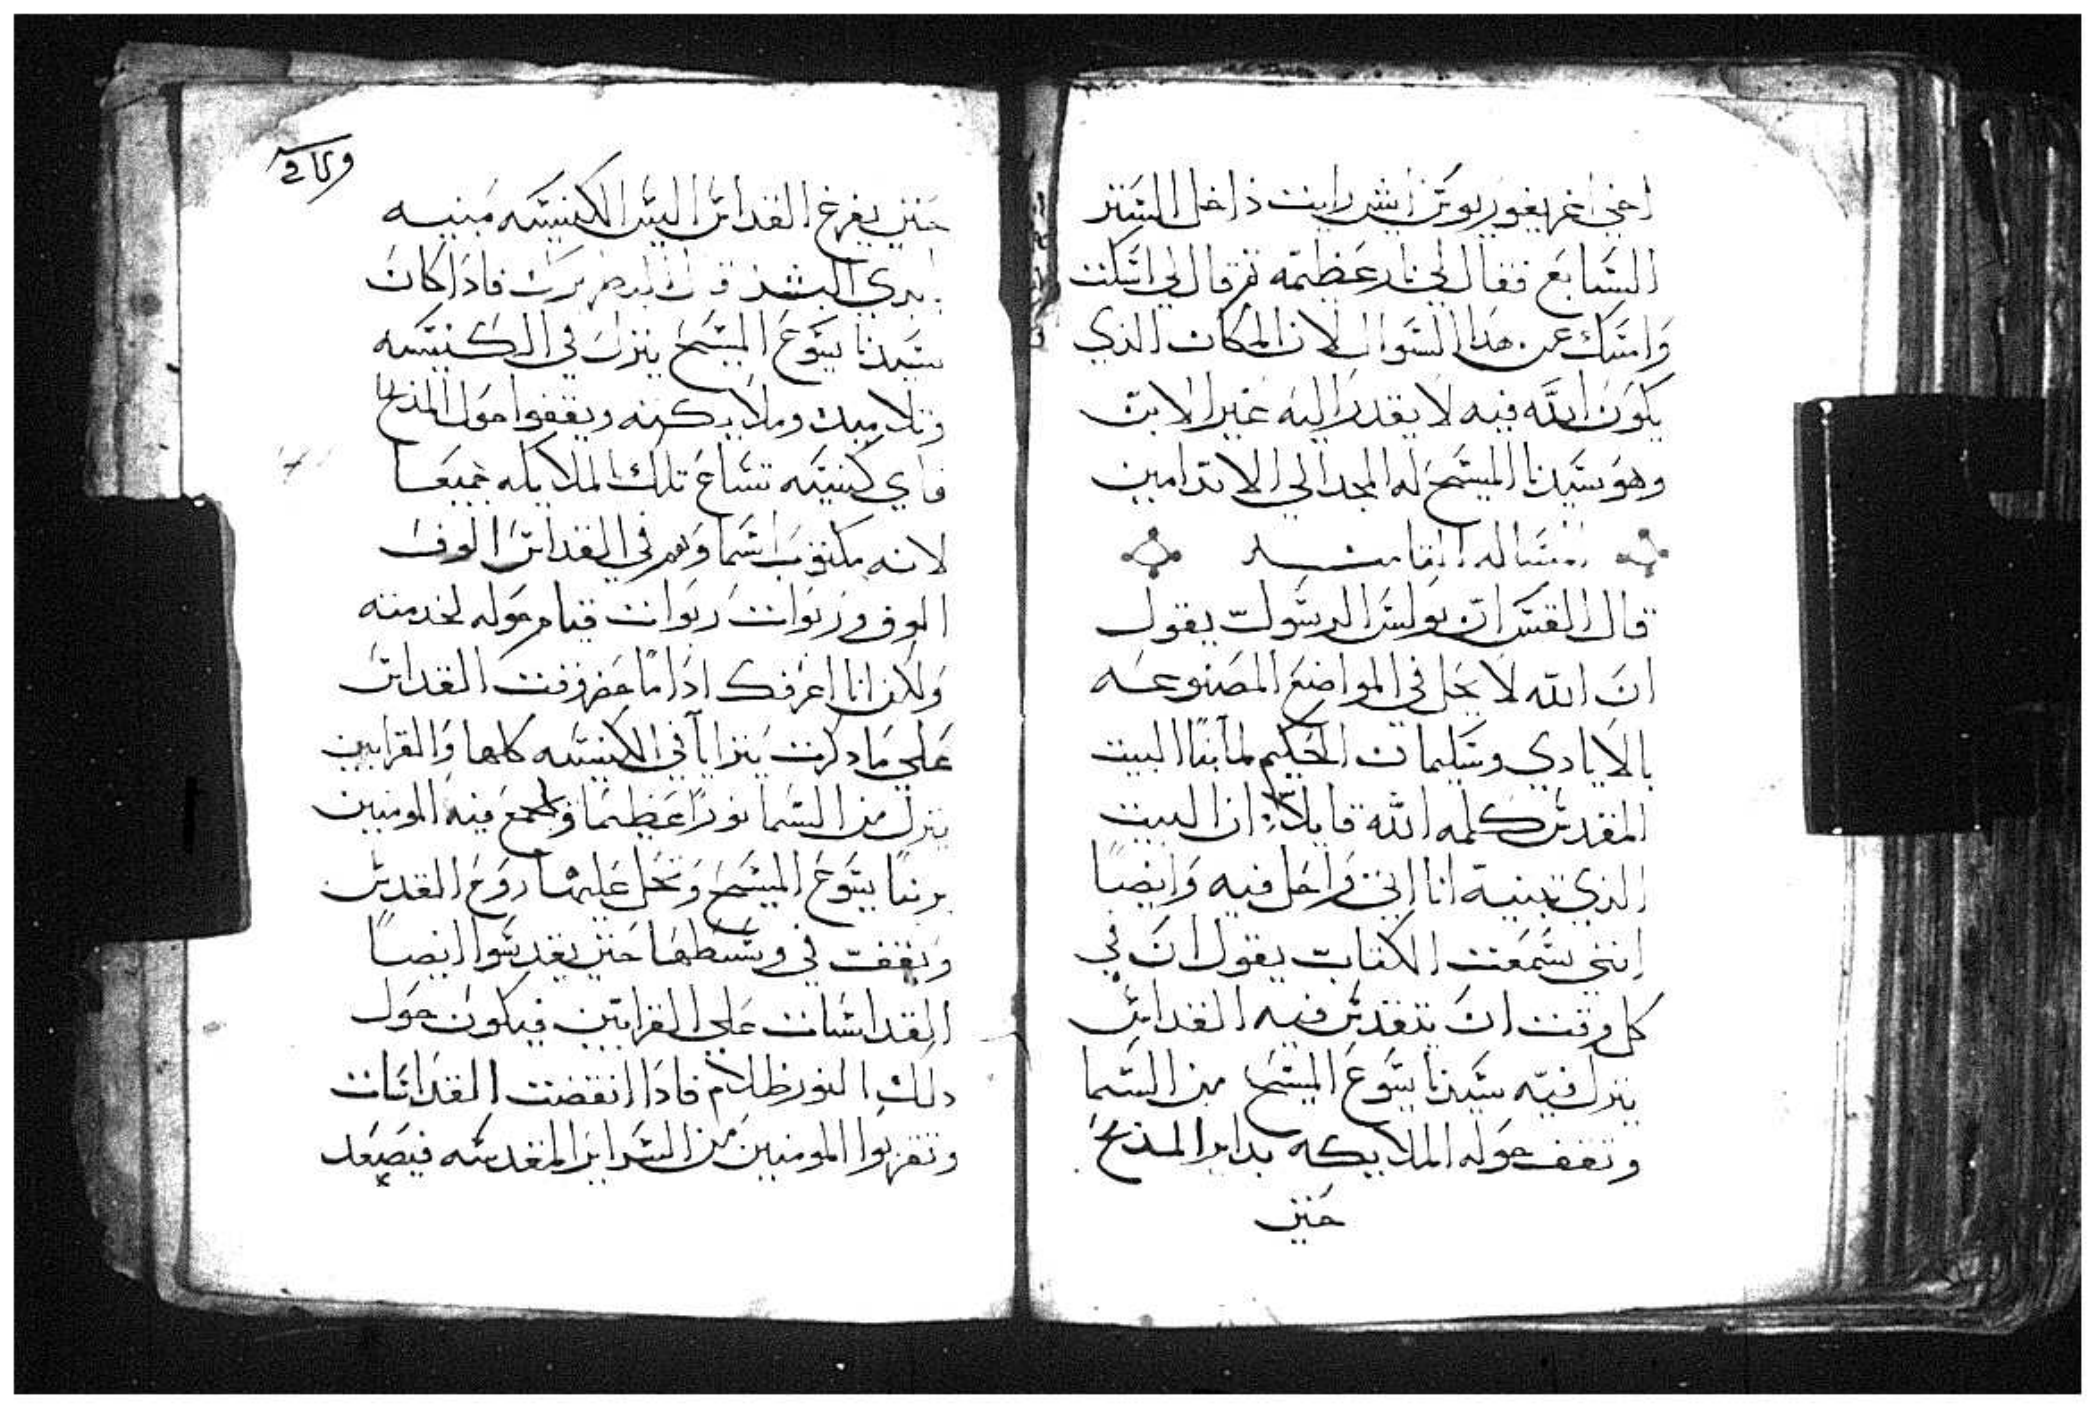 اخي اغريغوريوس ايش رايت داخل الستر
السابع فقال لي نار عظيمه ثم قال لي اسكت
وامسك عن هدا السوال لان المكان الذي
يكون الله فيه لا يقدر اليه غير الابن
وهو سيدنا المسيح له المجد الي الابد امين
المساله الخامسه
قال القس ان بولس الرسول يقول
ان الله لا يحل في المواضع المصنوعه
بالايادي وسليمان الحكيم لما بنا البيت
المقدس كلمه الله قايلا ان البيت
الذي تبنيه انا اتي واحل فيه وايضا
انني سمعت الكتاب يقول ان في
كل وقت ان يتقدس فيه القداس
ينزل فيه سيدنا يسوع المسيح من السما
وتقف حوله الملايكه بداير المدبح
حتي
حتي يفرغ القداس اليس الكنيسه مبنيه
بايدي البشر قال
فادا كان
سيدنا يسوع المسيح ينزل في الكنيسه
وتلاميده وملايكته ويقفوا حول المدبح
فاي كنيسه تساع تلك الملايكه جميعا
لانه مكتوب
وهم في القداس الوف
الوف وربوات ربوات قيام حوله لخدمته
ولاكن انا اعرفك ادا ما حضر وقت القداس
علي ما دكرت يترايا في الكنيسه كلها والقرابين
ينزل من السما نورا عظيما ويجمع فيه المومنين
بربنا يسوع المسيح وتحل عليها روح القدس
وتقف في وسطها حتي يقدسوا ايضا
القداسات علي القرابين فيكون حول
دلك النور ظلام فادا انقضت القداسات
وتقربوا المومنين من السراير المقدسه فيصعد